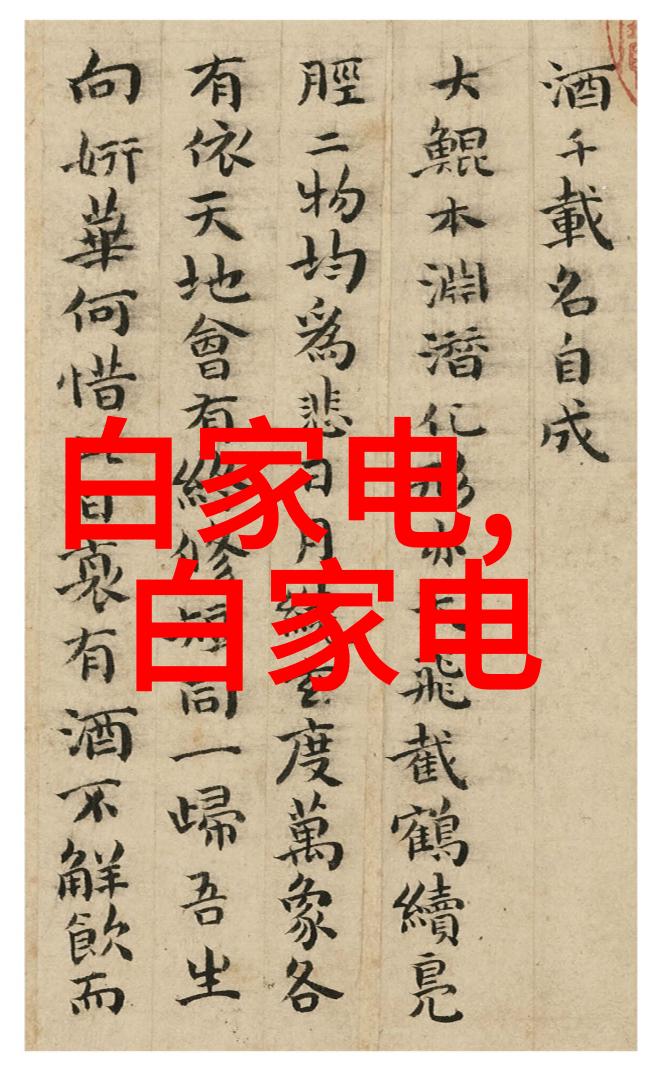 酒千載名自成
大鯤本淵潛化形亦飛截鶴續鳧
脛二物均爲悲日月度萬象各
有依天地會有終修短同一歸吾生
向妍華何惜日衰有酒不解飲而
白家电,
白家电